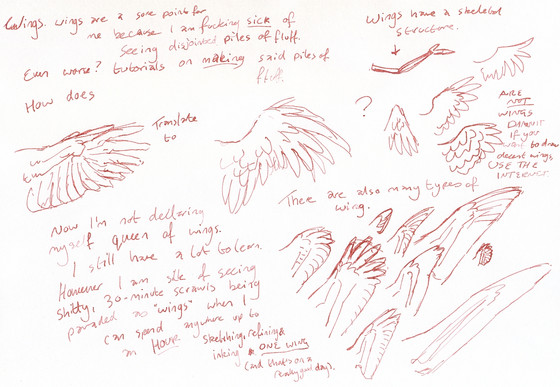 Wings. Wings are a sore point for
me because I am fucking sick of
seeing disjointed piles of fluff.
Even worse? tutorials on making said piles of
fluff.
How does
Translate
to
?
Wings have a skeletal
structure.
ARE
NOT
WINGS
DAMNIT
IF you
want to draw
decent wings
USE THE
INTERNET.
There are also many types of
wing.
Now I'm not declaring
myself queen of wings.
I still have a lot to learn.
However I am sick of seeing
shitty, 30-minute scrawls being
paraded as "wings" when I
can spend anywhere up to
an HOUR sketching, refining &
inking ONE WING
(and that's on a
really good day).